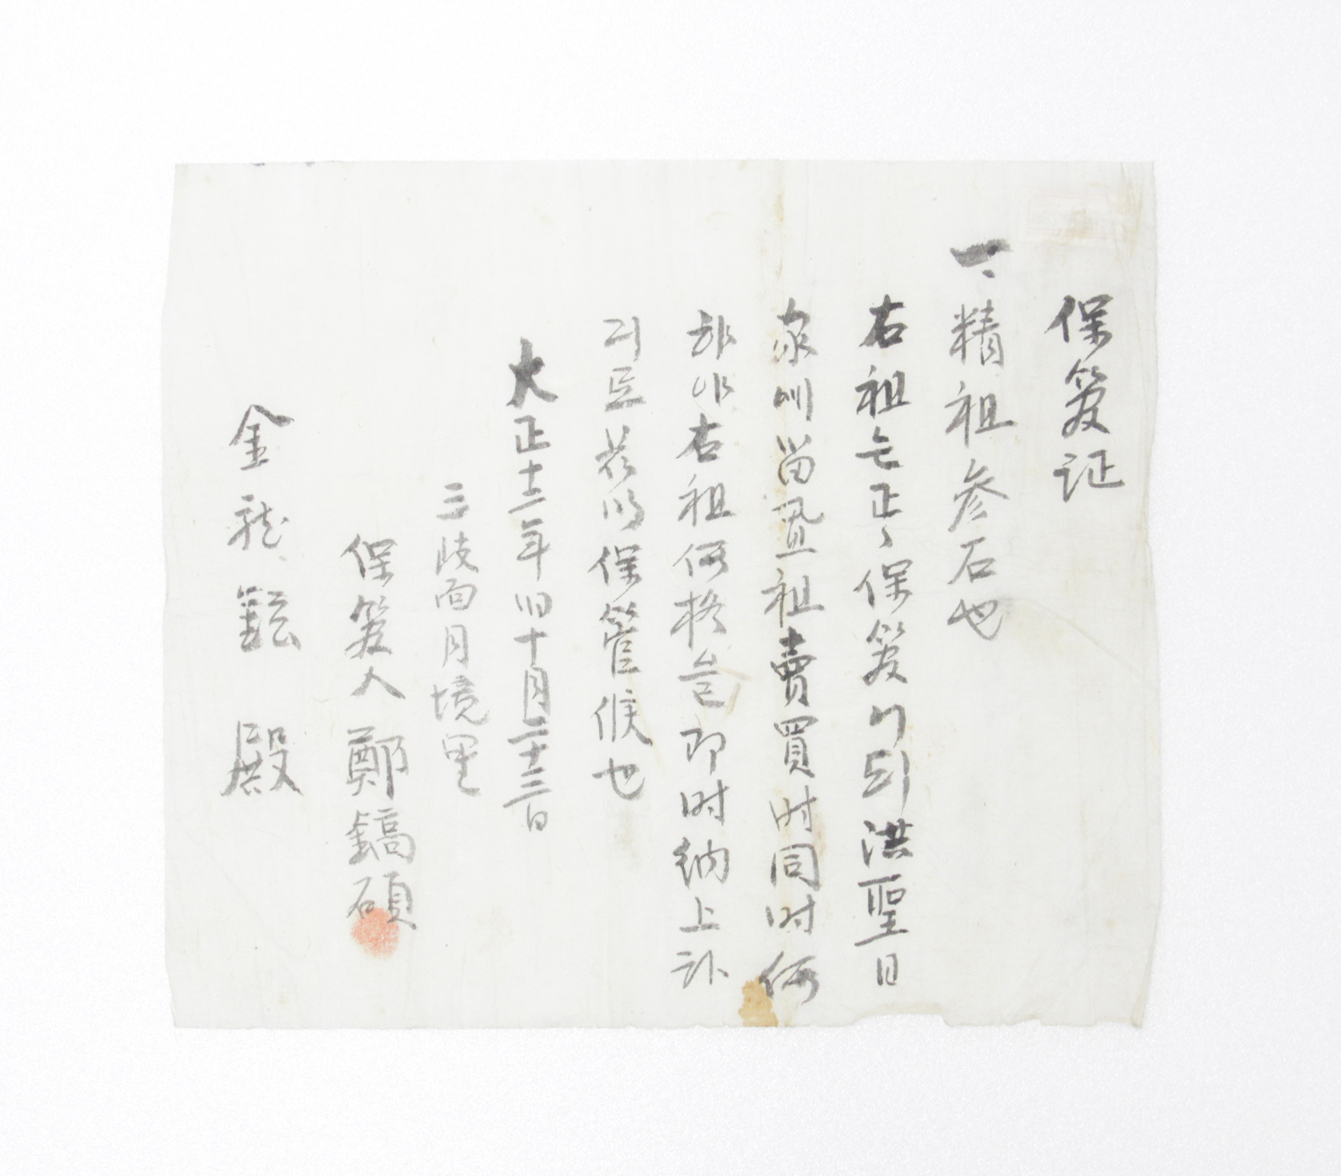 保笈証
一、精租参石也
右租는正、保笈이되洪聖日
家에留置租賣買時同時価
하야右租価格을即时納上하
기로玆以保管候也
大正十二年旧十月二十三日
三岐面月境里
保笈人鄭鎬碩
金龍鉉 殿